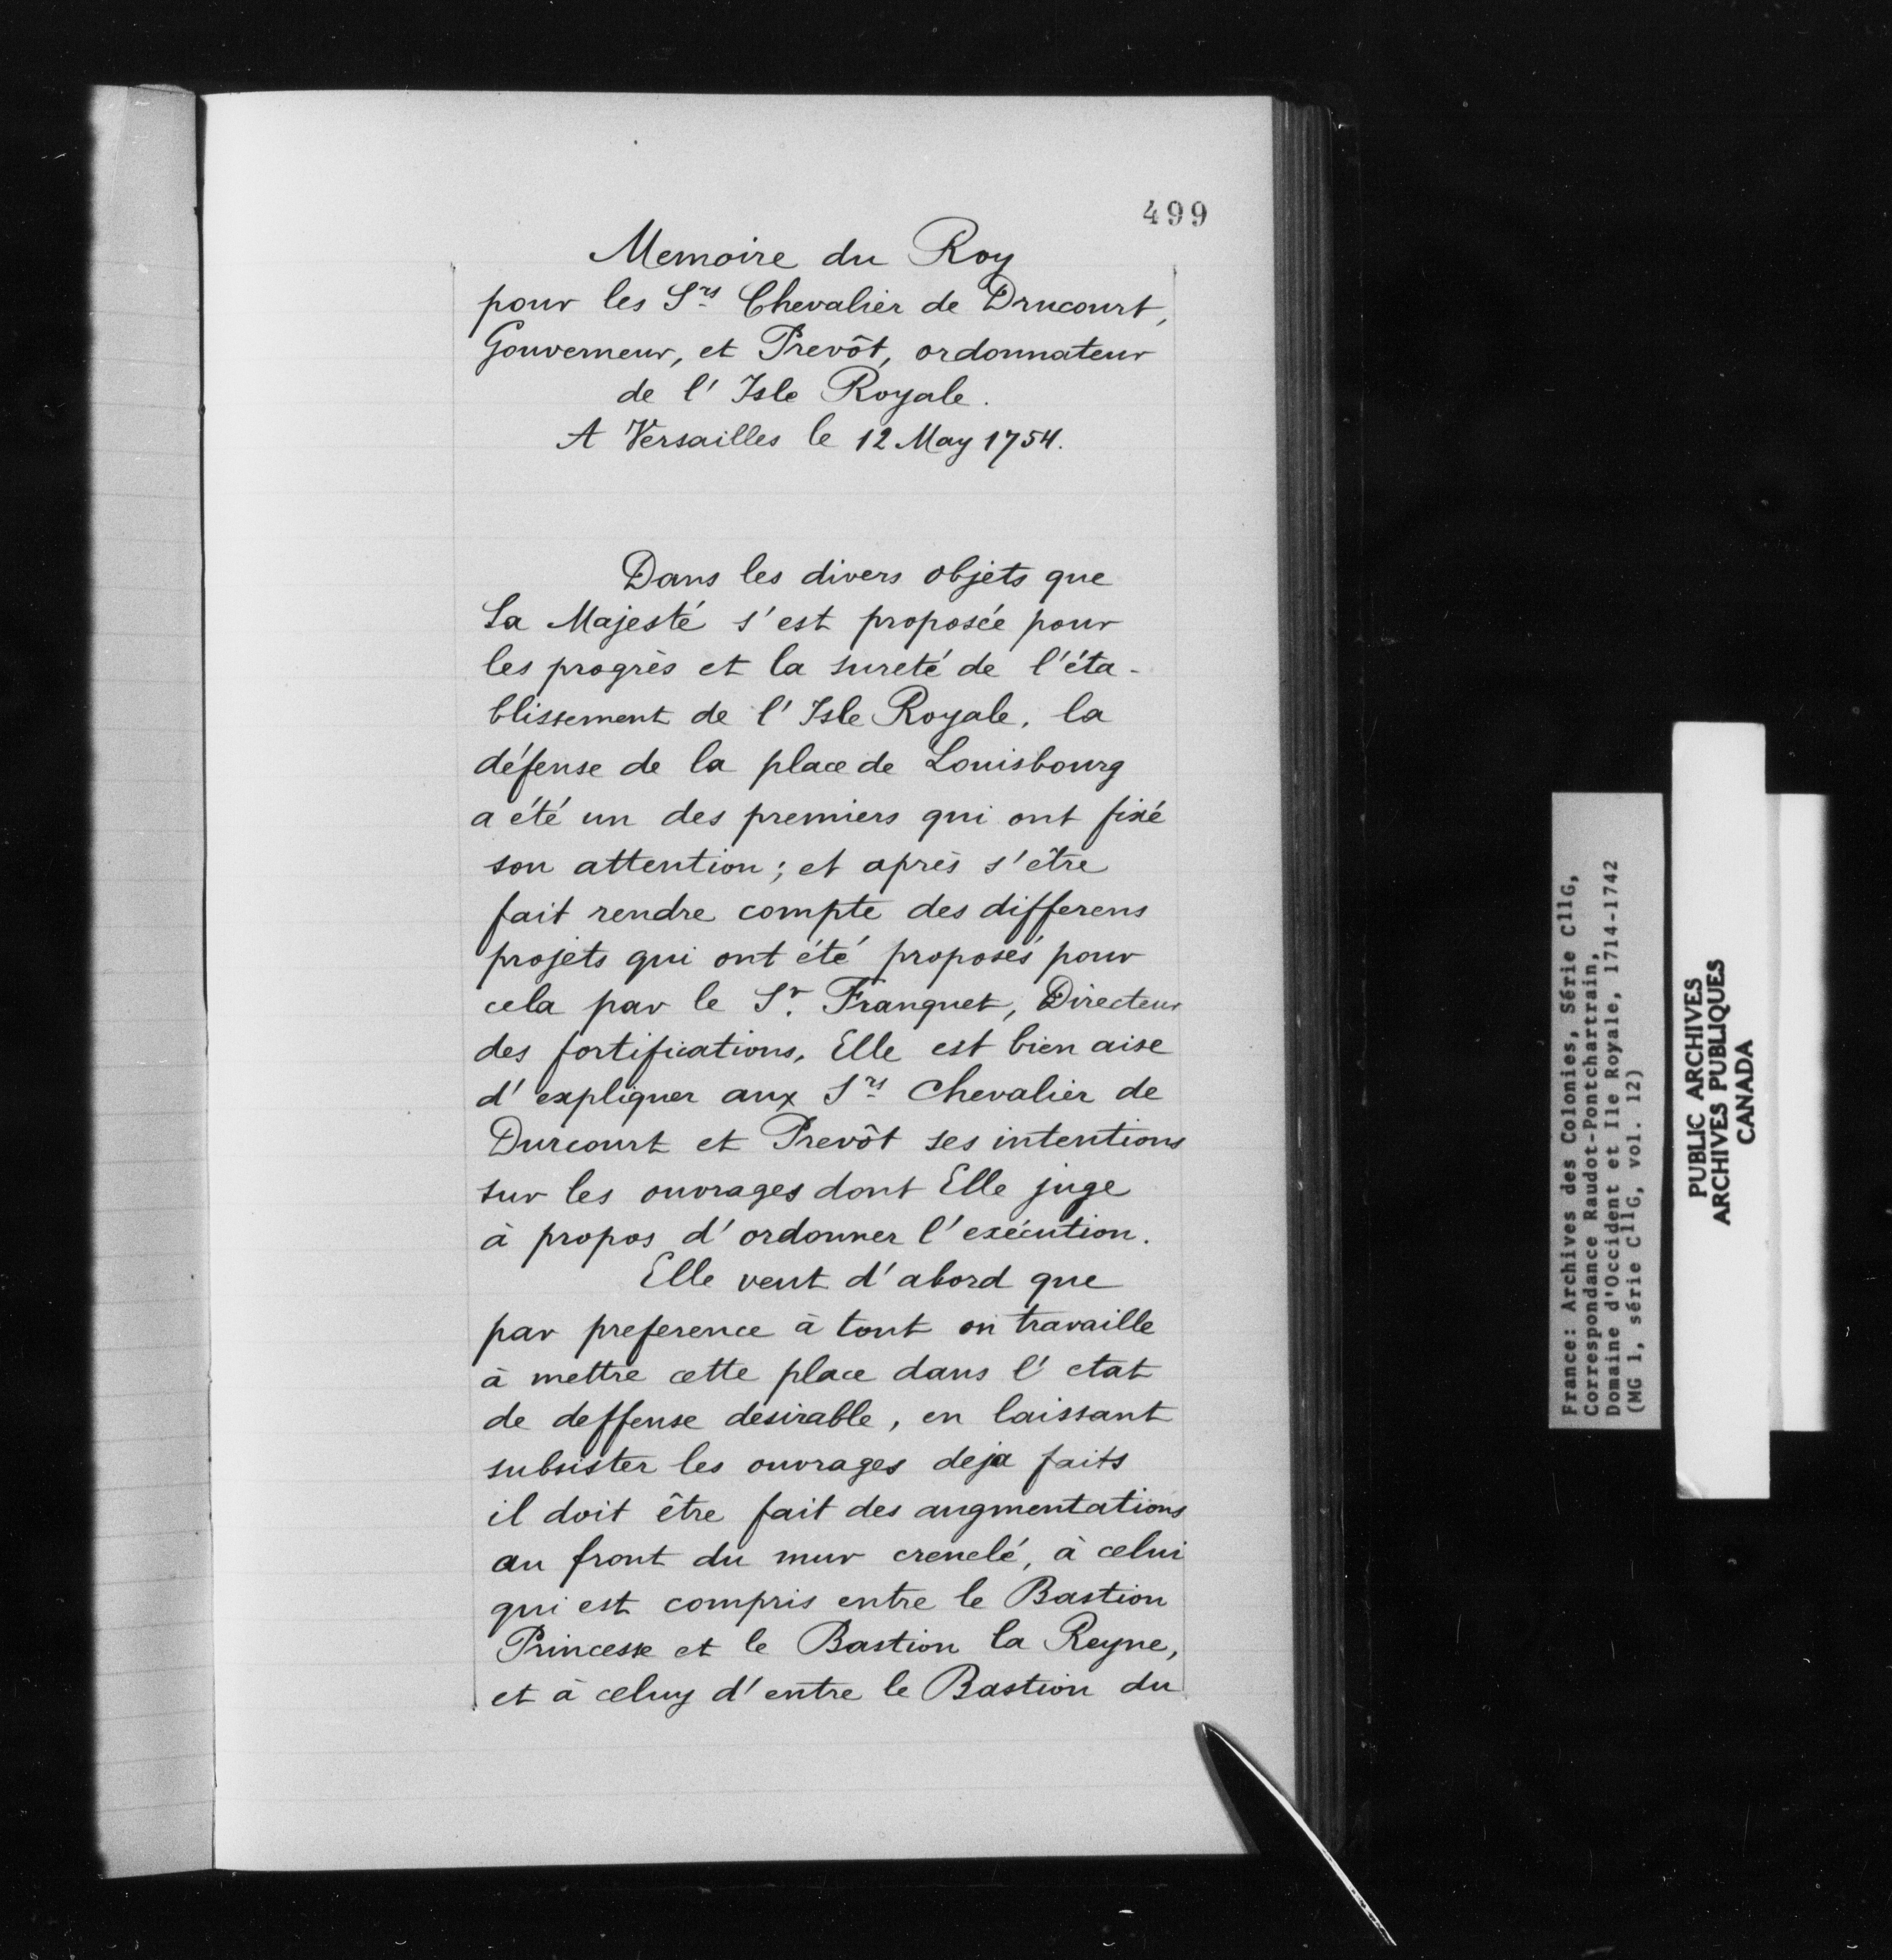 499
Memoire du Roy
pour les Srs Chevalier de Drucourt,
Gouverneur, et Prevôt, ordonnateur
de l' Isle Royale.
A Versailles le 12 May 1754.
Dans les divers objets que
Sa Majesté s'est proposée pour
les progrès et la sureté de l'éta-
blissement de l' Isle Royale, la
défense de la place de Louisbourg
a été un des premiers qui ont fixé
son attention; et après s'être
fait rendre compte des differens
projets qui ont été proposés pour
cela par le Sr. Franquet, Directeur
des fortifications, Elle est bien aise
d' expliquer aux Srs Chevalier de
Durcourt et Prevôt ses intentions
sur les ouvrages dont Elle juge
à propos d' ordonner l'exécution.
Elle veut d'abord que
par preference à tout on travaille
à mettre cette place dans l' etat
de deffense desirable, en laissant
subsister les ouvrages deja faits
il doit être fait des augmentations
au front du mur crenelé, à celui
qui est compris entre le Bastion
Princesse et le Bastion la Reyne,
et à celuy d' entre le Bastion du
France: Archives des Colonies, Série C11G,
Correspondance Raudot-Pontchartrain,
Domaine d'Occident et Ile Royale, 1714-1742
(MG 1, série C11G, vol. 12)
PUBLIC ARCHIVES
ARCHIVES PUBLIQUES
CANADA